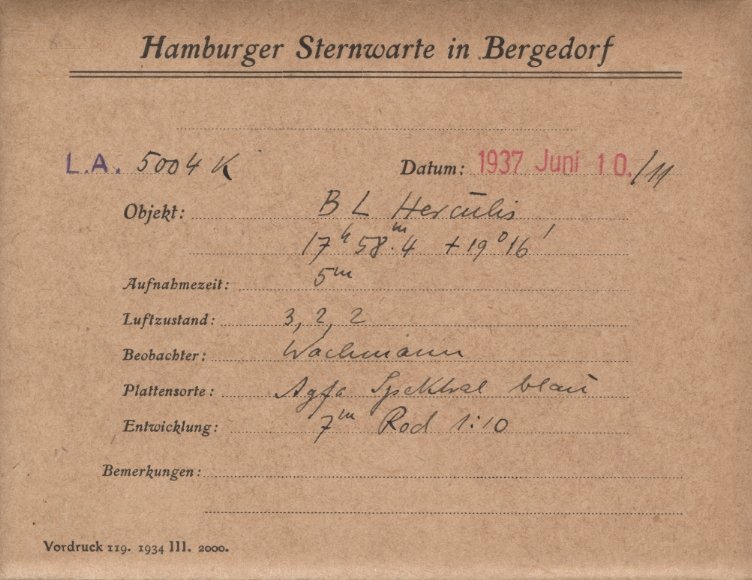 Hamburger Sternwarte in Bergedorf
L.A. 5004 K Datum: 1937 Juni 10./11
Objekt: B L Herculis
17ʰ 58ᵐ.4 +19⁰16'
Aufnahmezeit: 5ᵐ
Luftzustand: 3, 2, 2
Beobachter: Wachmann
Plattensorte: Agfa Spektral blau
Entwicklung: 7ᵐ Rod 1:10
Bemerkungen:
Vordruck 119. 1934 III. 2000.